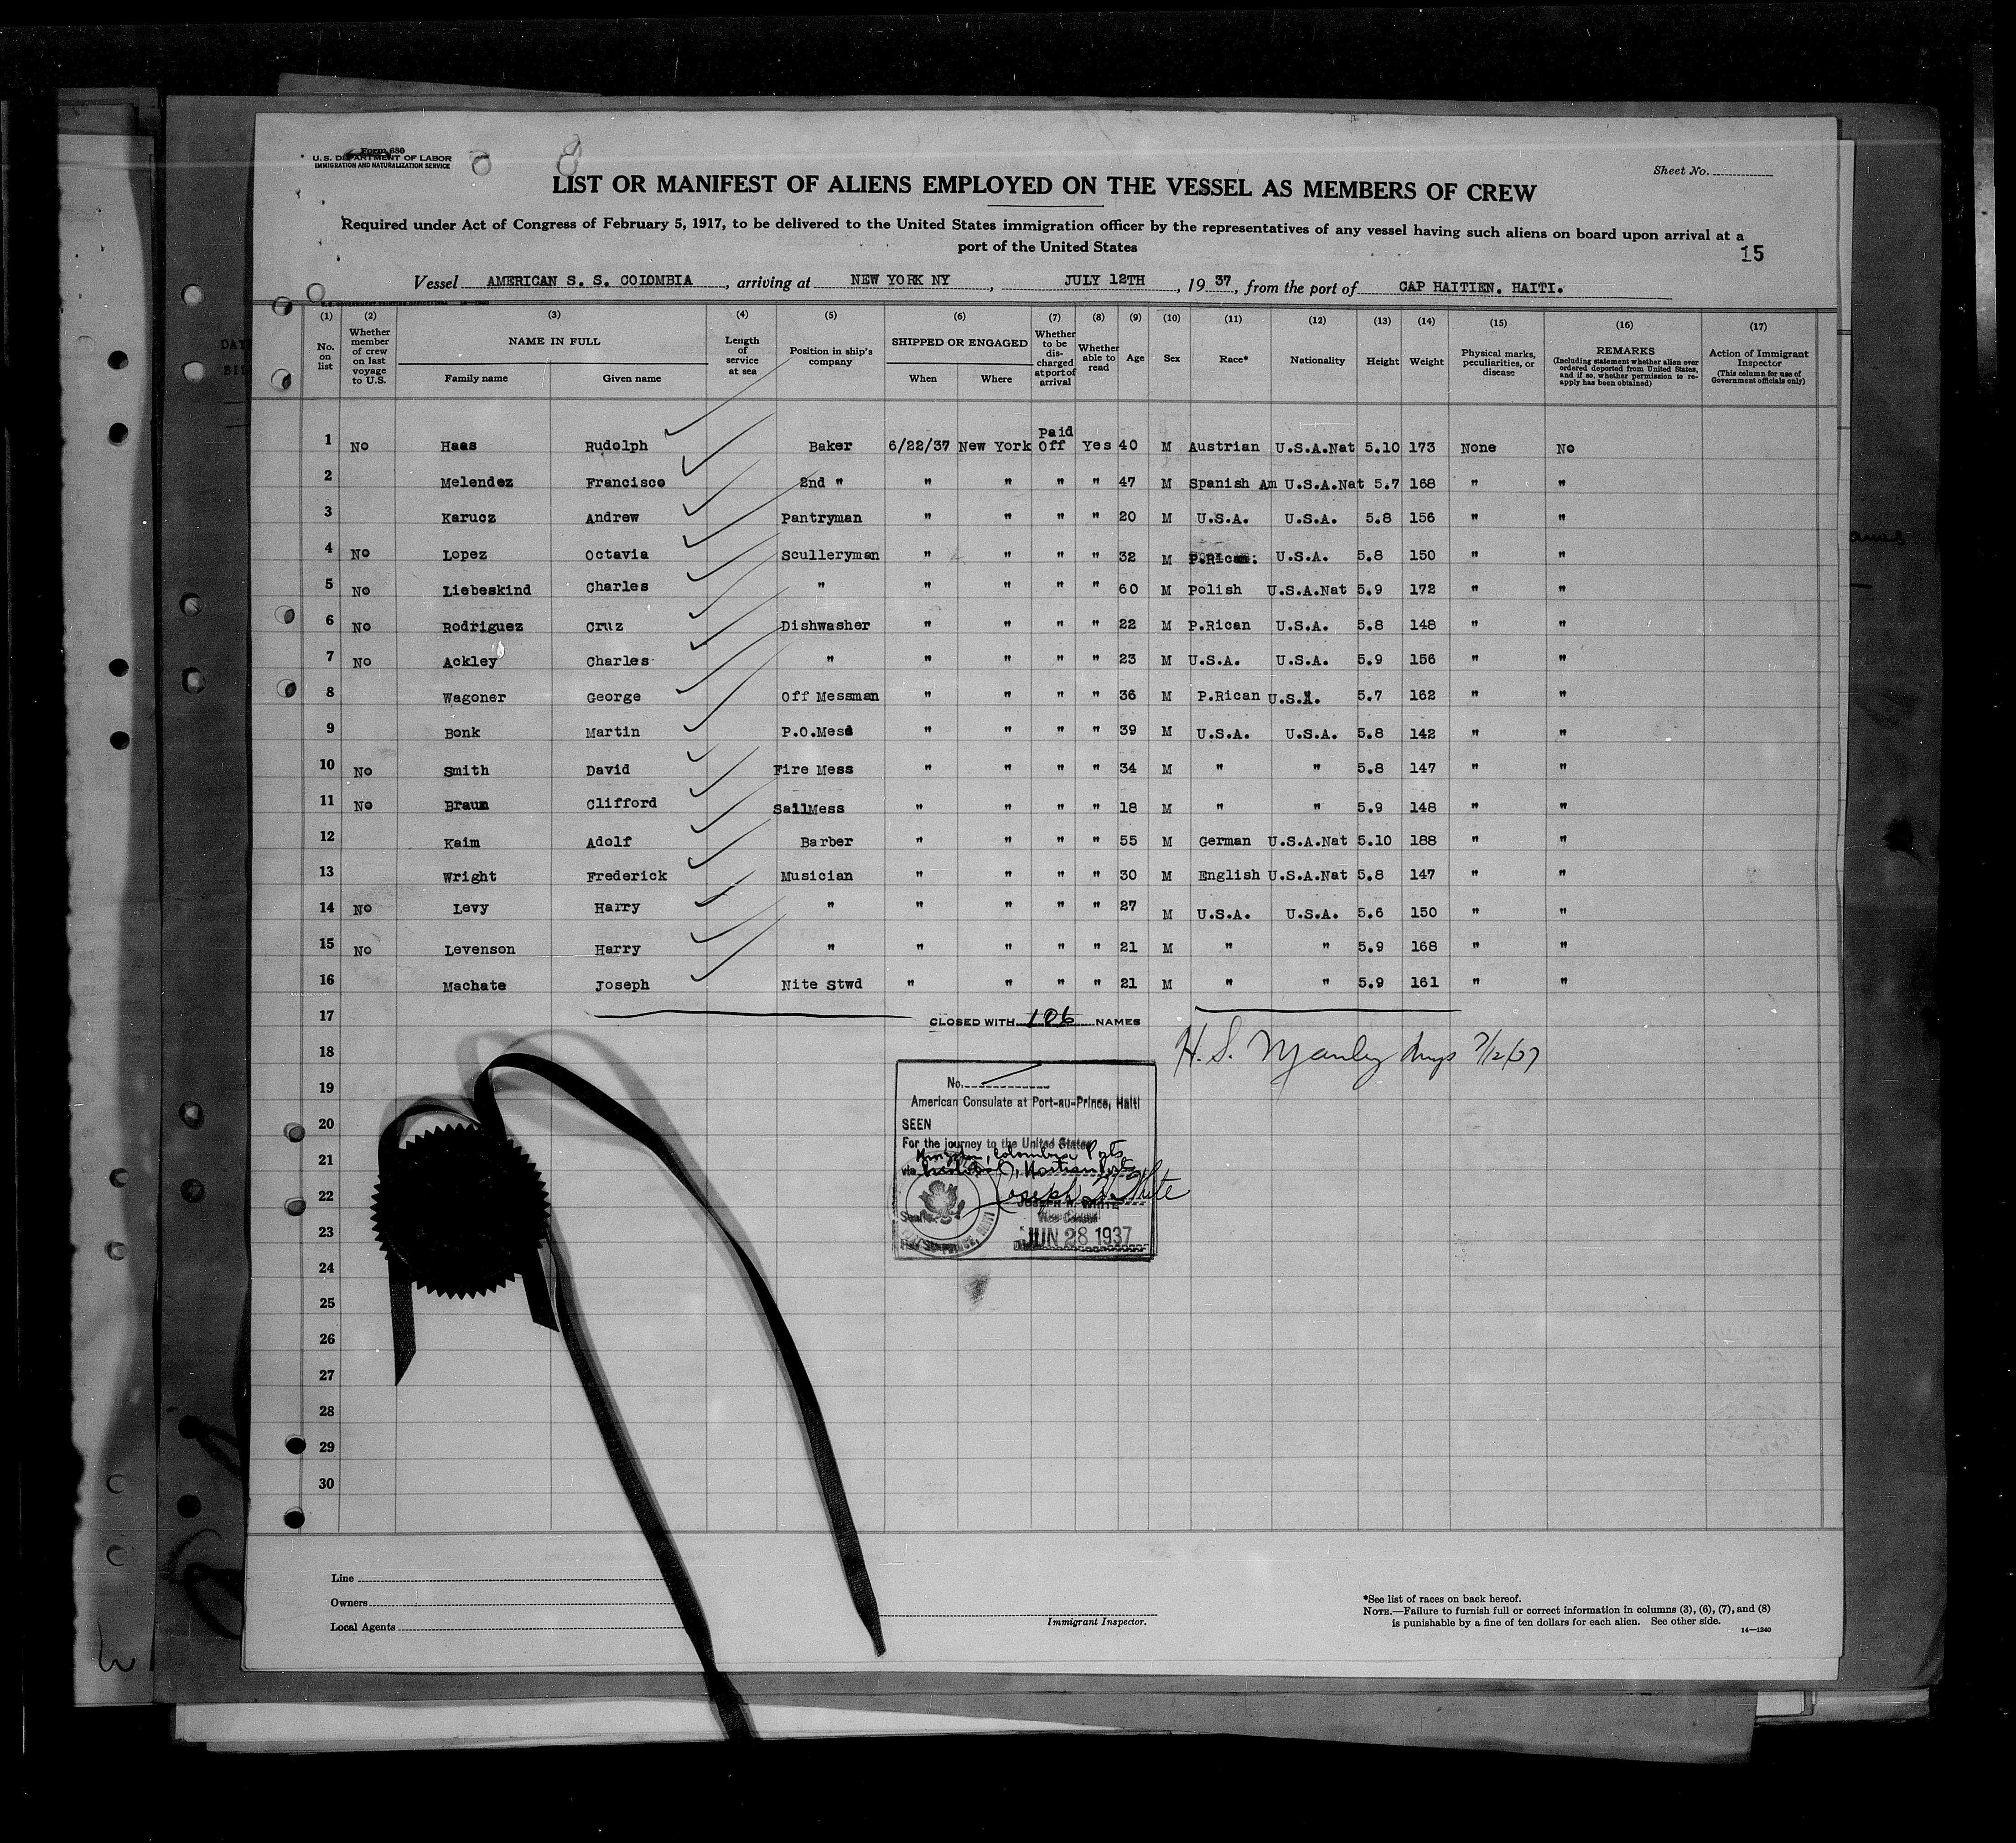 Form 680
U.S. DEPARTMENT OF LABOR
IMMIGRATION AND NATURALIZATION SERVICE
Sheet No.
LIST OR MANIFEST OF ALIENS EMPLOYED ON THE VESSEL AS MEMBERS OF CREW
Required under Act of Congress of February 5, 1917, to be delivered to the United States immigration officer by the representatives of any vessel having such aliens on board upon arrival at a
port of the United States
15
Vessel AMERICAN S. S. COlOMBIA, arriving at NEW YORK NY, JULY 12TH, 1937, from the port of CAP HAITIEN. HAITI.
(1) (2) (3) (4) (5) (6) (7) (8) (9) (10) (11) (12) (13) (14) (15) (16) (17)
No. on list Whether member of crew on last voyage to U.S. NAME IN FULL Family name Given name Length of service at sea Position in ship's company SHIPPED OR ENGAGED When Where Whether to be discharged at port of arrival Whether able to read Age Sex Race* Nationality Height Weight Physical marks, peculiarities, or disease REMARKS (Including statement whether alien ever ordered deported from United States, and if so, whether permission to reapply has been obtained) Action of Immigrant Inspector (This column for use of Government officials only)
1 No Haas Rudolph Baker 6/22/37 New York Paid Off Yes 40 M Austrian U.S.A.Nat 5.10 173 None No
2 Melendez Francisco 2nd " " " " " 47 M Spanish Am U.S.A.Nat 5.7 168 " "
3 Karucz Andrew Pantryman " " " " 20 M U.S.A. U.S.A. 5.8 156 " "
4 No Lopez Octavia Sculleryman " " " " 32 M P.Rican. U.S.A. 5.8 150 " "
5 No Liebeskind Charles " " " " " 60 M Polish U.S.A.Nat 5.9 172 " "
6 No Rodriguez Cruz Dishwasher " " " " 22 M P.Rican U.S.A. 5.8 148 " "
7 No Ackley Charles " " " " " 23 M U.S.A. U.S.A. 5.9 156 " "
8 Wagoner George Off Messman " " " " 36 M P.Rican U.S.A. 5.7 162 " "
9 Bonk Martin P.O.Mess " " " " 39 M U.S.A. U.S.A. 5.8 142 " "
10 No Smith David Fire Mess " " " " 34 M " " 5.8 147 " "
11 No Braun Clifford SailMess " " " " 18 M " " 5.9 148 " "
12 Kaim Adolf Barber " " " " 55 M German U.S.A.Nat 5.10 188 " "
13 Wright Frederick Musician " " " " 30 M English U.S.A.Nat 5.8 147 " "
14 No Levy Harry " " " " " 27 M U.S.A. U.S.A. 5.6 150 " "
15 No Levenson Harry " " " " " 21 M " " 5.9 168 " "
16 Machate Joseph Nite Stwd " " " " 21 M " " 5.9 161 " "
17 CLOSED WITH 106 NAMES
18 H. S. Manley 7/12/37
19
20
21
22
23
24
25
26
27
28
29
30
No.
American Consulate at Port-au-Prince, Haiti
SEEN
For the journey to the United States
Colombia Ports
via Haitian Ports
Joseph W. White
JOSEPH W. WHITE
Vice Consul
Seal
JUN 28 1937
Line
Owners
Local Agents
Immigrant Inspector.
*See list of races on back hereof.
NOTE.—Failure to furnish full or correct information in columns (3), (6), (7), and (8)
is punishable by a fine of ten dollars for each alien. See other side.
14—1240